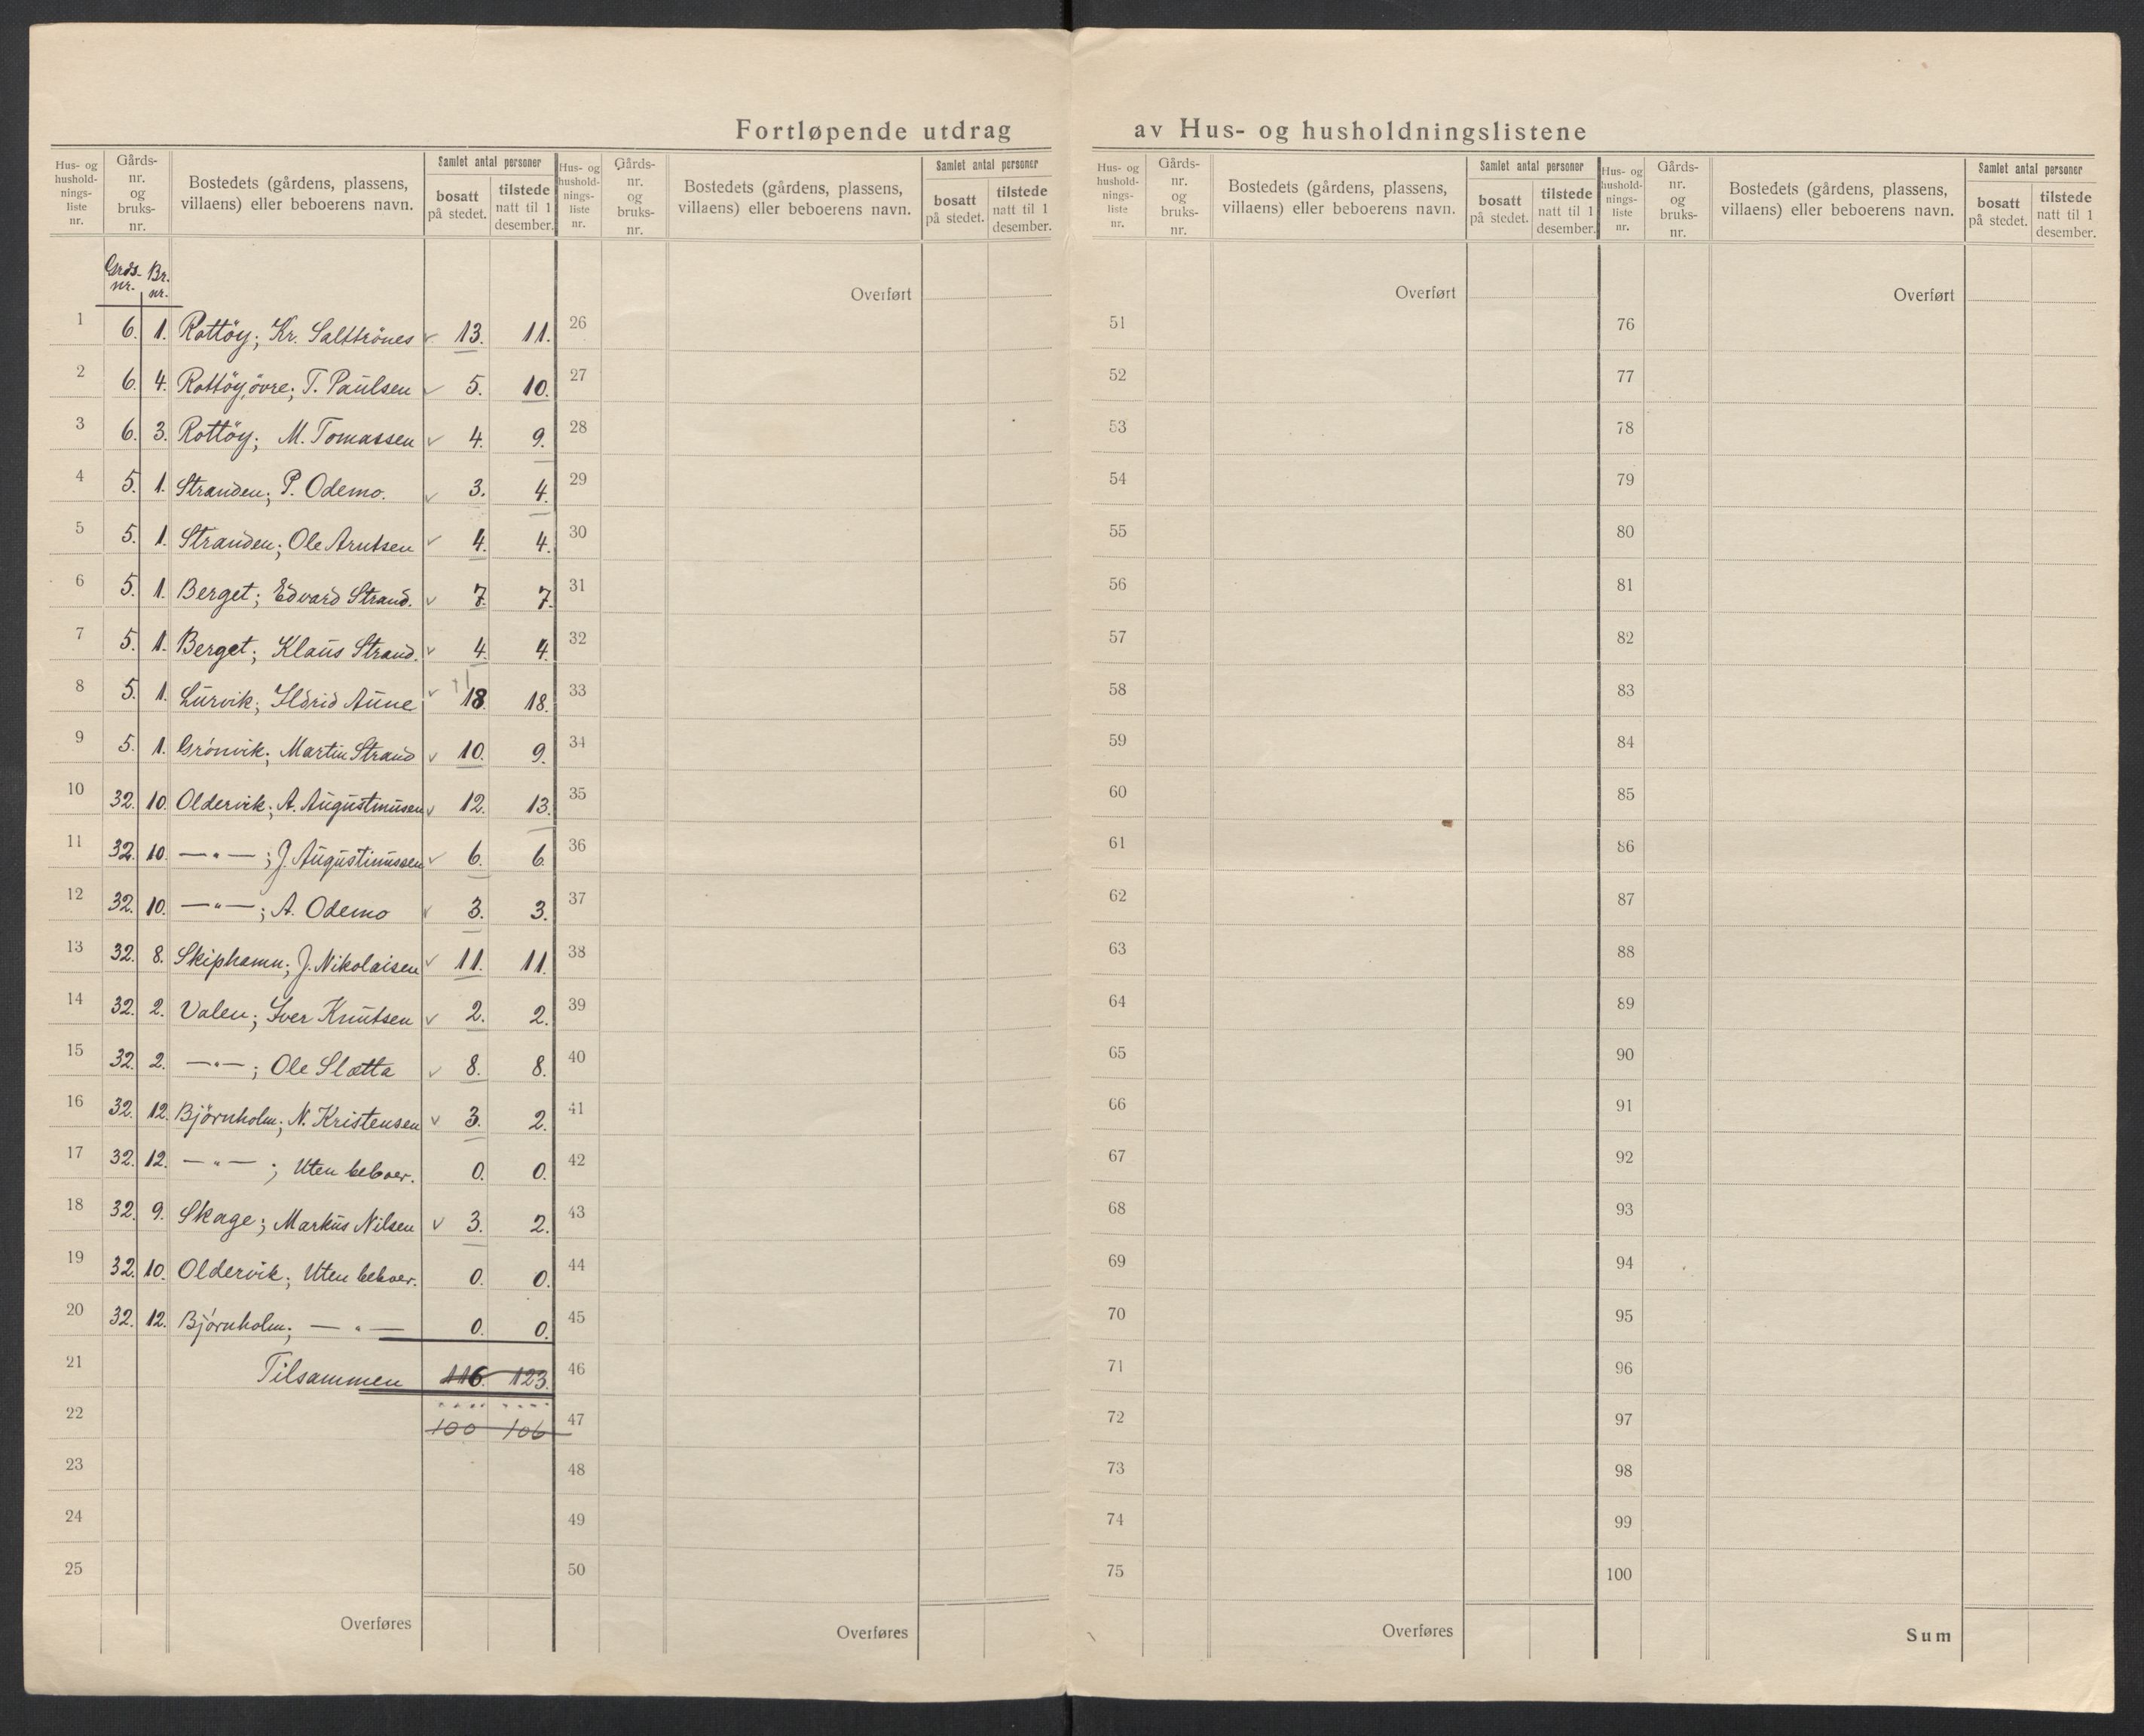 Fortløpende utdrag av Hus- og husholdningslistene
Hus- og hushold- nings- liste nr. Gårds- nr. og bruks- nr. Bostedets (gårdens, plassens, villaens) eller beboerens navn. Samlet antal personer bosatt på stedet. tilstede natt til 1 desember.
Hus- og hushold- nings- liste nr. Gårds- nr. og bruks- nr. Bostedets (gårdens, plassens, villaens) eller beboerens navn. Samlet antal personer bosatt på stedet. tilstede natt til 1 desember.
Hus- og hushold- nings- liste nr. Gårds- nr. og bruks- nr. Bostedets (gårdens, plassens, villaens) eller beboerens navn. Samlet antal personer bosatt på stedet. tilstede natt til 1 desember.
Hus- og hushold- nings- liste nr. Gårds- nr. og bruks- nr. Bostedets (gårdens, plassens, villaens) eller beboerens navn. Samlet antal personer bosatt på stedet. tilstede natt til 1 desember.
Grds. nr. Br. nr.
Overført Overført Overført
1 6. 1. Rottöy; Kr. Salttrönes 13. 11. 26 51 76
2 6. 4. Rottöy, övre; T. Paulsen 5. 10. 27 52 77
3 6. 3. Rottöy; M. Tomassen 4. 9. 28 53 78
4 5. 1. Stranden; P. Odemo. 3. 4. 29 54 79
5 5. 1. Stranden; Ole Arntsen 4. 4. 30 55 80
6 5. 1. Berget; Edvard Strand. 7. 7. 31 56 81
7 5. 1. Berget; Klaus Strand. 4. 4. 32 57 82
8 5. 1. Lurvik; Ildrid Aune 18. 18. 33 58 83
9 5. 1. Grönvik; Martin Strand 10. 9. 34 59 84
10 32. 10. Oldervik; A. Augustinusen 12. 13. 35 60 85
11 32. 10. —"— ; J. Augustinussen 6. 6. 36 61 86
12 32. 10. —"— ; A. Odemo 3. 3. 37 62 87
13 32. 8. Skiphamn; J. Nikolaisen 11. 11. 38 63 88
14 32. 2. Valen; Iver Knutsen 2. 2. 39 64 89
15 32. 2. —"— ; Ole Slatta 8. 8. 40 65 90
16 32. 12. Björnholm; N. Kristensen 3. 2. 41 66 91
17 32. 12. —"— ; Uten beboer. 0. 0. 42 67 92
18 32. 9. Skage; Markus Nilsen 3. 2. 43 68 93
19 32. 10. Oldervik; Uten beboer. 0. 0. 44 69 94
20 32. 12. Björnholm; —"— 0. 0. 45 70 95
21 Tilsammen 116. 123. 46 71 96
22 100 106 47 72 97
23 48 73 98
24 49 74 99
25 50 75 100
Overføres Overføres Overføres Sum